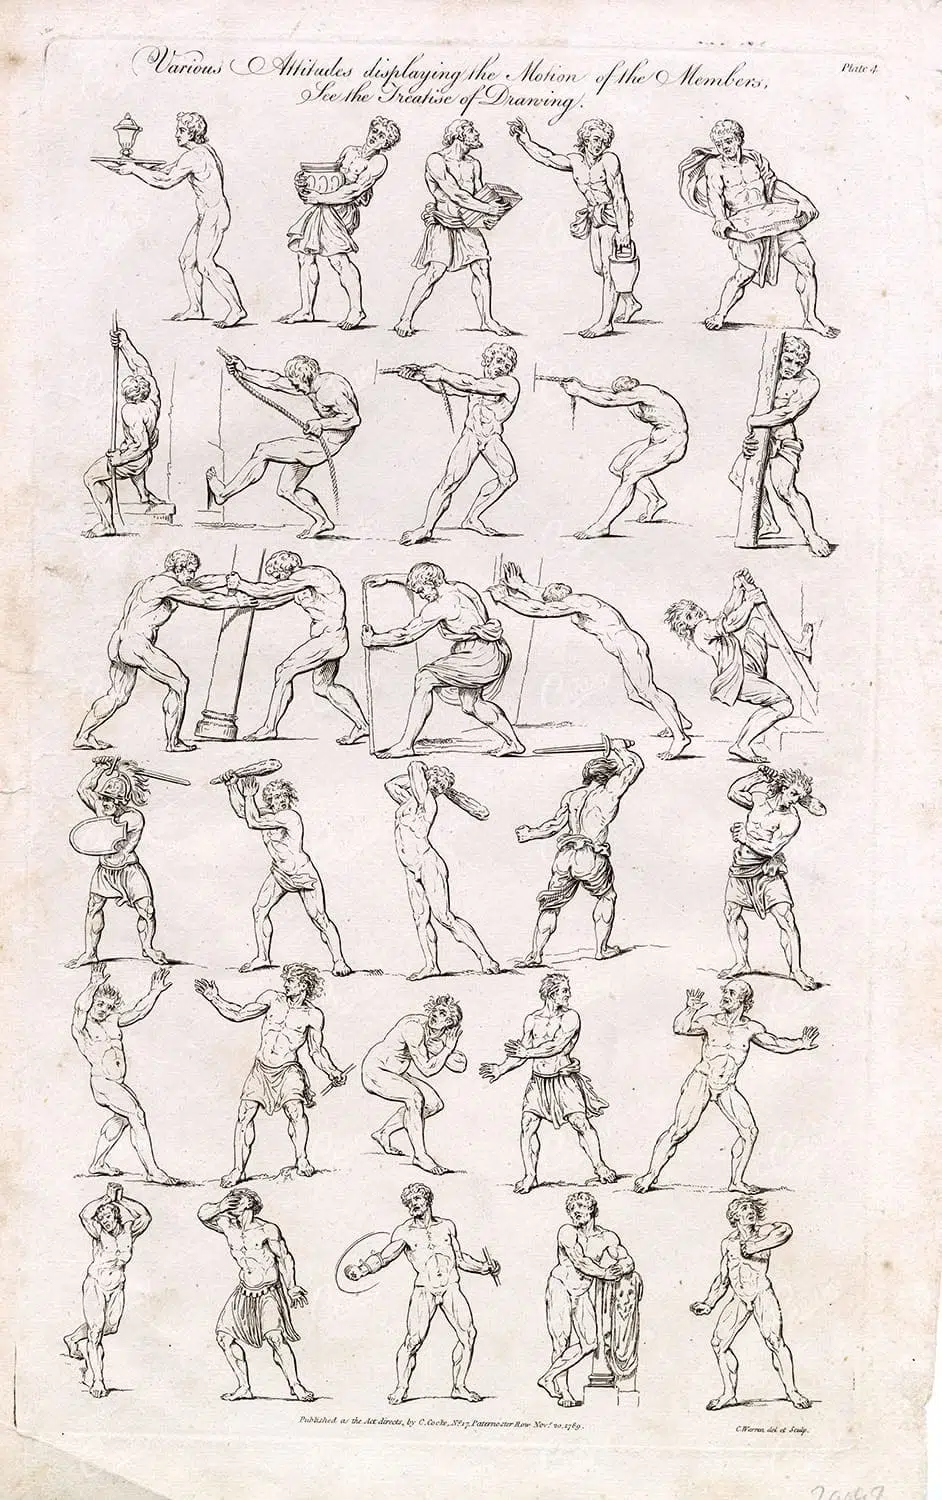 Various Attitudes displaying the Motion of the Members,
Plate 4
See the Treatise of Drawing.
Published as the Act directs, by C. Cooke, No. 17, Paternoster Row Novr. 20, 1789.
C. Warren del et Sculp.